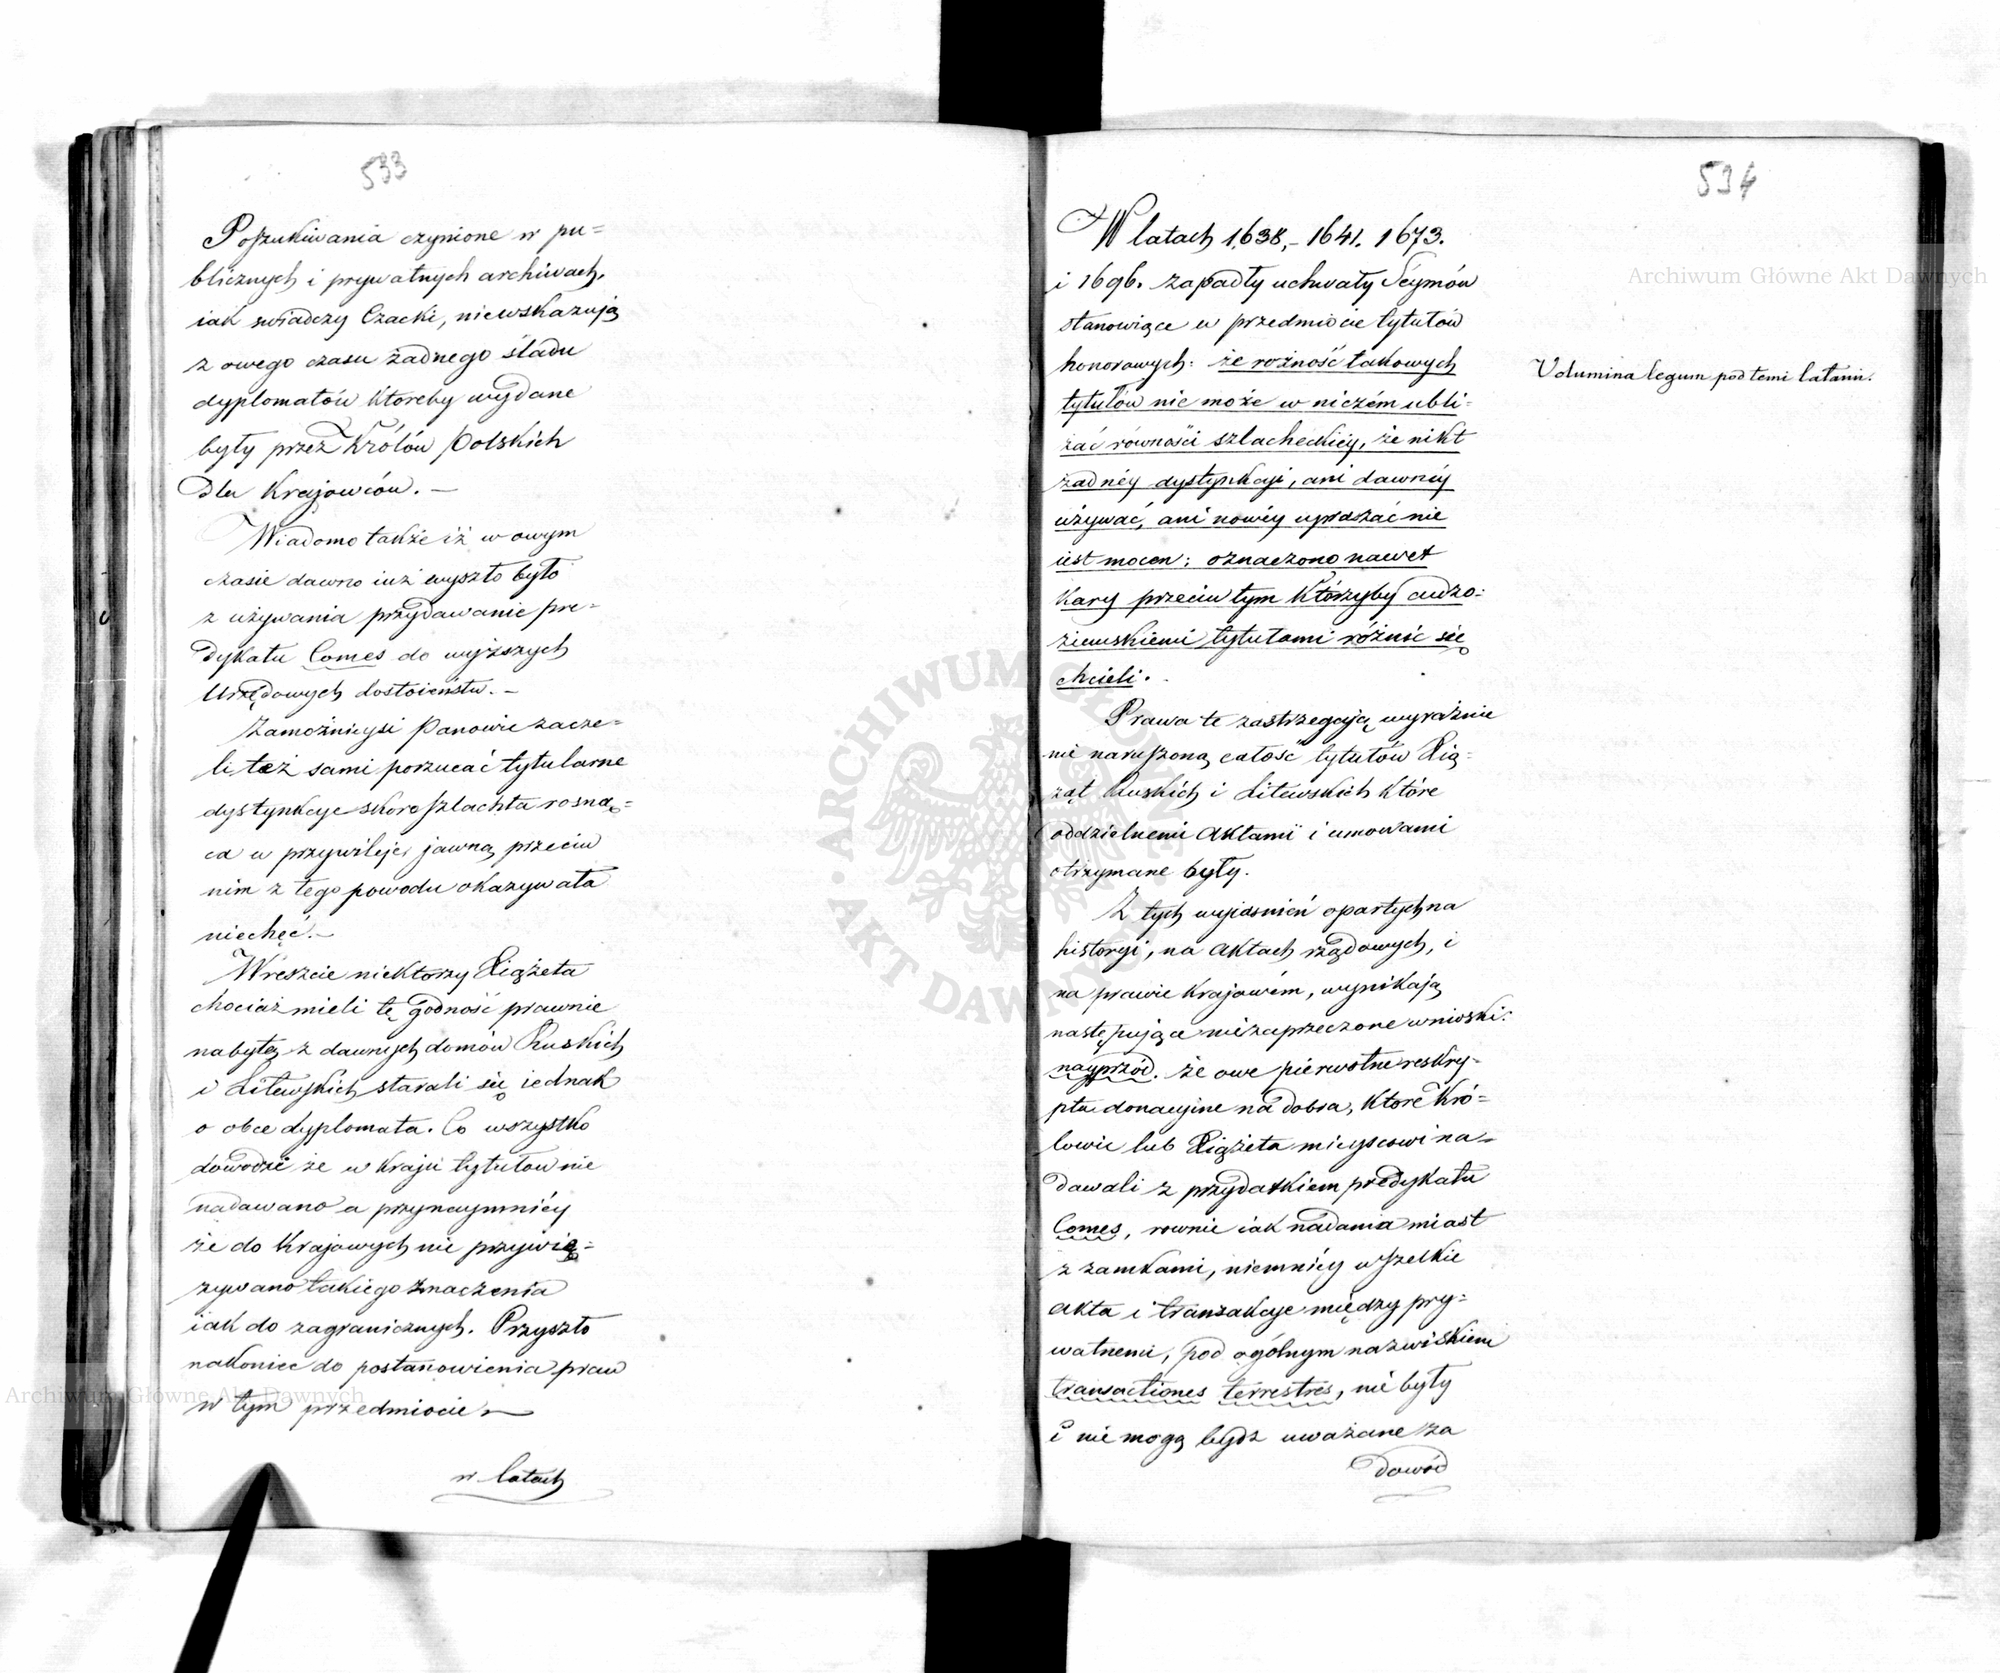 533
Poszukiwania czynione w pu=
blicznych i prywatnych archiwach,
iak swiadczy Czacki, niewskazują
z owego czasu żadnego śladu
dyplomatów ktoreby wydane
były przez Królów Polskich
dla Krajowców. —
Wiadomo także iż w owym
czasie dawno iuż wyszło było
z używania przydawanie pre=
dykatu Comes do wyższych
Urzędowych dostoieństw. —
Zamożnieysi Panowie zacze=
li też sami porzucać tytularne
dystynkcye skoro szlachta rosną=
ca w przywileje, jawną przeciw
nim z tego powodu okazywała
niechęć. —
Wreszcie niektorzy Xiążeta
chociaż mieli tę godność prawnie
nabytą z dawnych domów Ruskich
i Litewskich starali się iednak
o obce dyplomata. Co wszystko
dowodzi że w kraju tytułow nie
nadawano a przynaymniéy
że do Krajowych nie przywią=
zywano takiego znaczenia
iak do zagranicznych. Przyszło
nakoniec do postanowienia praw
w tym przedmiocie —
w latach
534
W latach 1638, - 1641. 1673.
i 1696. zapadły uchwały Seymów
stanowiące w przedmiocie tytułów
honorowych: że rożność takowych
tytułów nie może w niczém ubli=
żać równości szlacheckiéy, że nikt
żadnéy dystynkcji, ani dawnéy
używać, ani nowéy upraszać nie
iest mocen; oznaczono nawet
Kary przeciw tym którzyby cudzo=
ziemskiemi tytułami różnić się
chcieli.
Volumina legum pod temi latami.
Prawa te zastrzegają wyraźnie
nie naruszoną całość tytułów Xią=
żąt Ruskich i Litewskich które
oddzielnemi Aktami i umowami
otrzymane były.
Z tych wyjasnień opartych na
historyi, na Aktach rządowych, i
na prawie Krajowém, wynikają
następujące niezaprzeczone wnioski:
nayprzód. że owe pierwotne reskry=
pta donacyjne na dobra, które Kró=
lowie lub Xiążeta mieyscowi na=
dawali z przydatkiem predykatu
Comes, rownie iak nadania miast
z zamkami, niemniéy wszelkie
akta i tranzakcje między pry=
watnemi, pod ogólnym nazwiskiem
transactiones terrestres, nie były
i nie mogą bydz uważane za
dowód
Archiwum Główne Akt Dawnych
Archiwum Główne Akt Dawnych
ARCHIWUM GŁÓWNE · AKT DAWNYCH ·